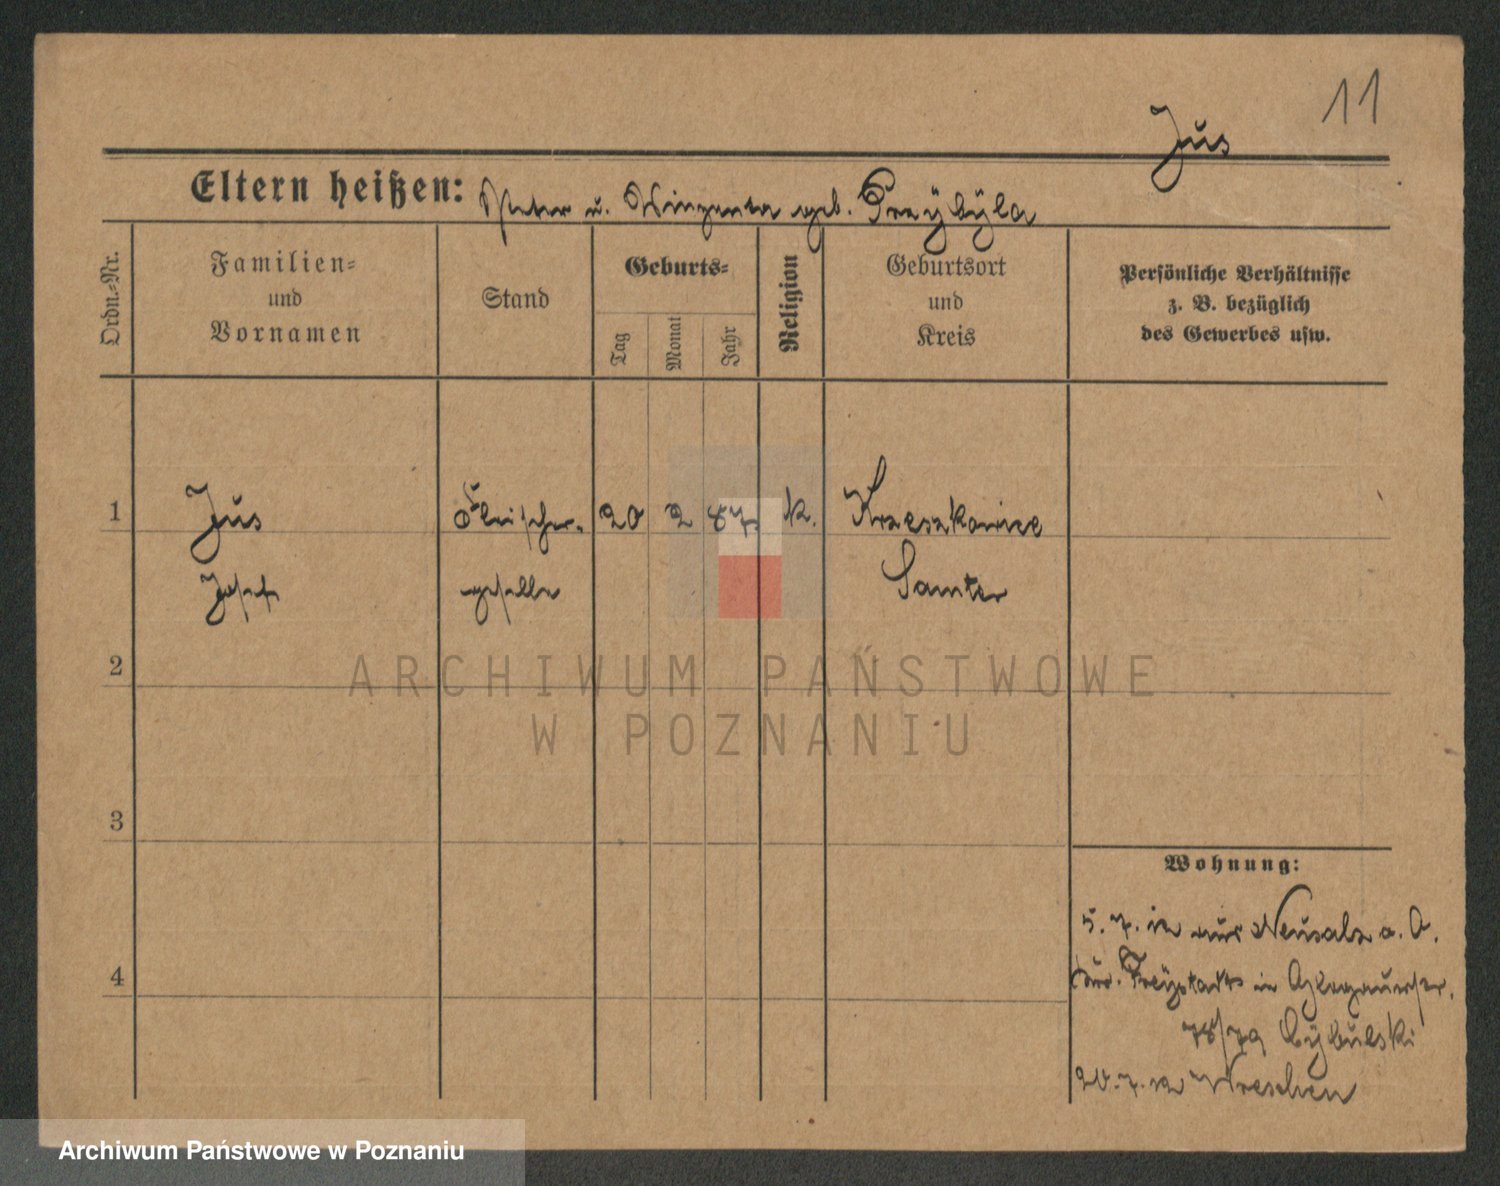 11
Jus
Eltern heißen: Peter u. Winzenta geb. Przybyla
Ordn.-Nr.
Familien-
und
Vornamen
Stand
Geburts-
Tag
Monat
Jahr
Religion
Geburtsort
und
Kreis
Persönliche Verhältnisse
z. B. bezüglich
des Gewerbes usw.
1 Jus Fleischer- 20 2 87 k.
Josef geselle Samter
2
ARCHIWUM PAŃSTWOWE
W POZNANIU
3
Wohnung:
5. 7. 12 aus Neusalz a. O.
Freystadt in
4
78/79 Cybulski
20. 7. 12 Wreschen
Archiwum Państwowe w Poznaniu